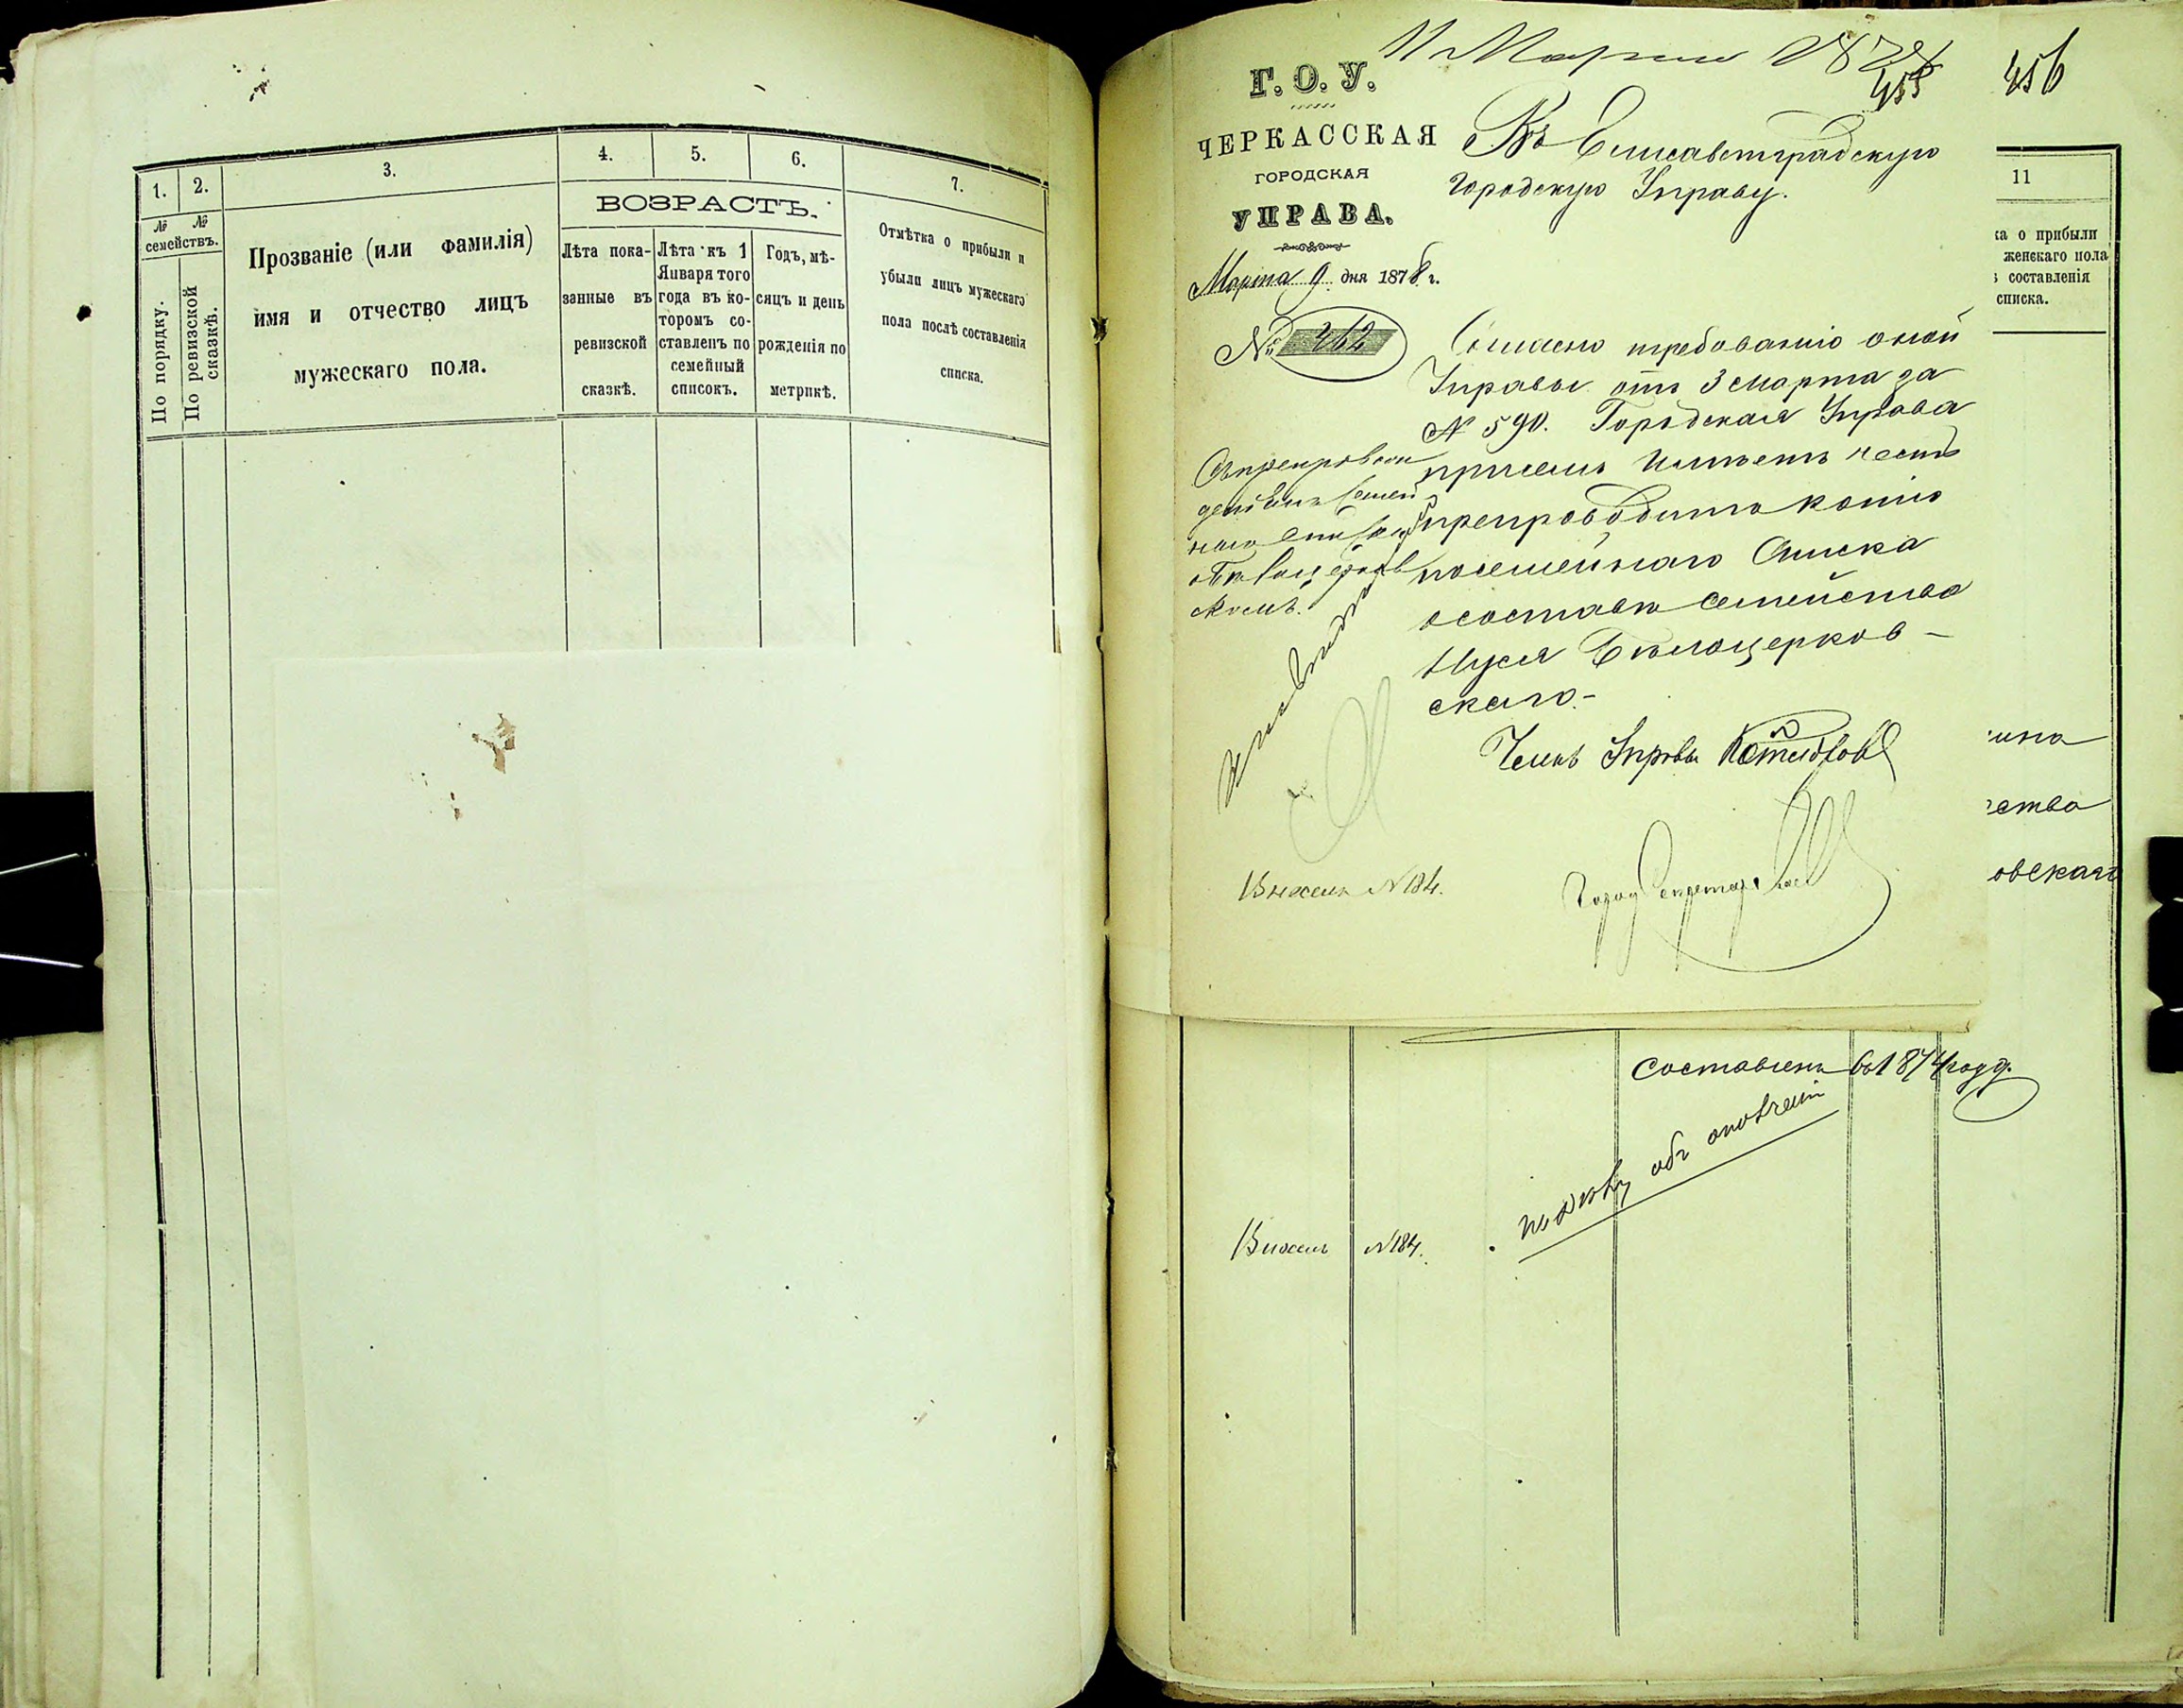 1. 2. 3. 4. 5. 6. 7.
№ №
семействъ.
По порядку.
По ревизской сказкѣ.
Прозваніе (или фамилія)
имя и отчество лицъ
мужескаго пола.
ВОЗРАСТЪ.
Лѣта пока-
занные въ
ревизской
сказкѣ.
Лѣта къ 1
Января того
года въ ко-
торомъ со-
ставленъ по
семейный
списокъ.
Годъ, мѣ-
сяцъ и день
рожденія по
метрикѣ.
Отмѣтка о прибыли и
убыли лицъ мужескаго
пола послѣ составленія
списка.
11 Марта 1878
455
456
Г. О. У.
ЧЕРКАССКАЯ
ГОРОДСКАЯ
УПРАВА.
Марта 9 дня 1878 г.
№ 262
Въ Елисаветградскую
Городскую Управу.
Согласно требованію оной
Управы отъ 3 Марта за
№ 590. Городская Управа
при семъ имѣетъ честь
препроводить копію
посемейнаго Списка
о составѣ семейства
Нуселя Бѣлоцерков-
скаго.-
Членъ Управы
Город Секретарь
Внесенъ № 184.
11
ка о прибыли
женскаго пола
составленія
списка.
ина
ства
овскаго
Составленъ въ 1874 году.
Внесенъ № 184.